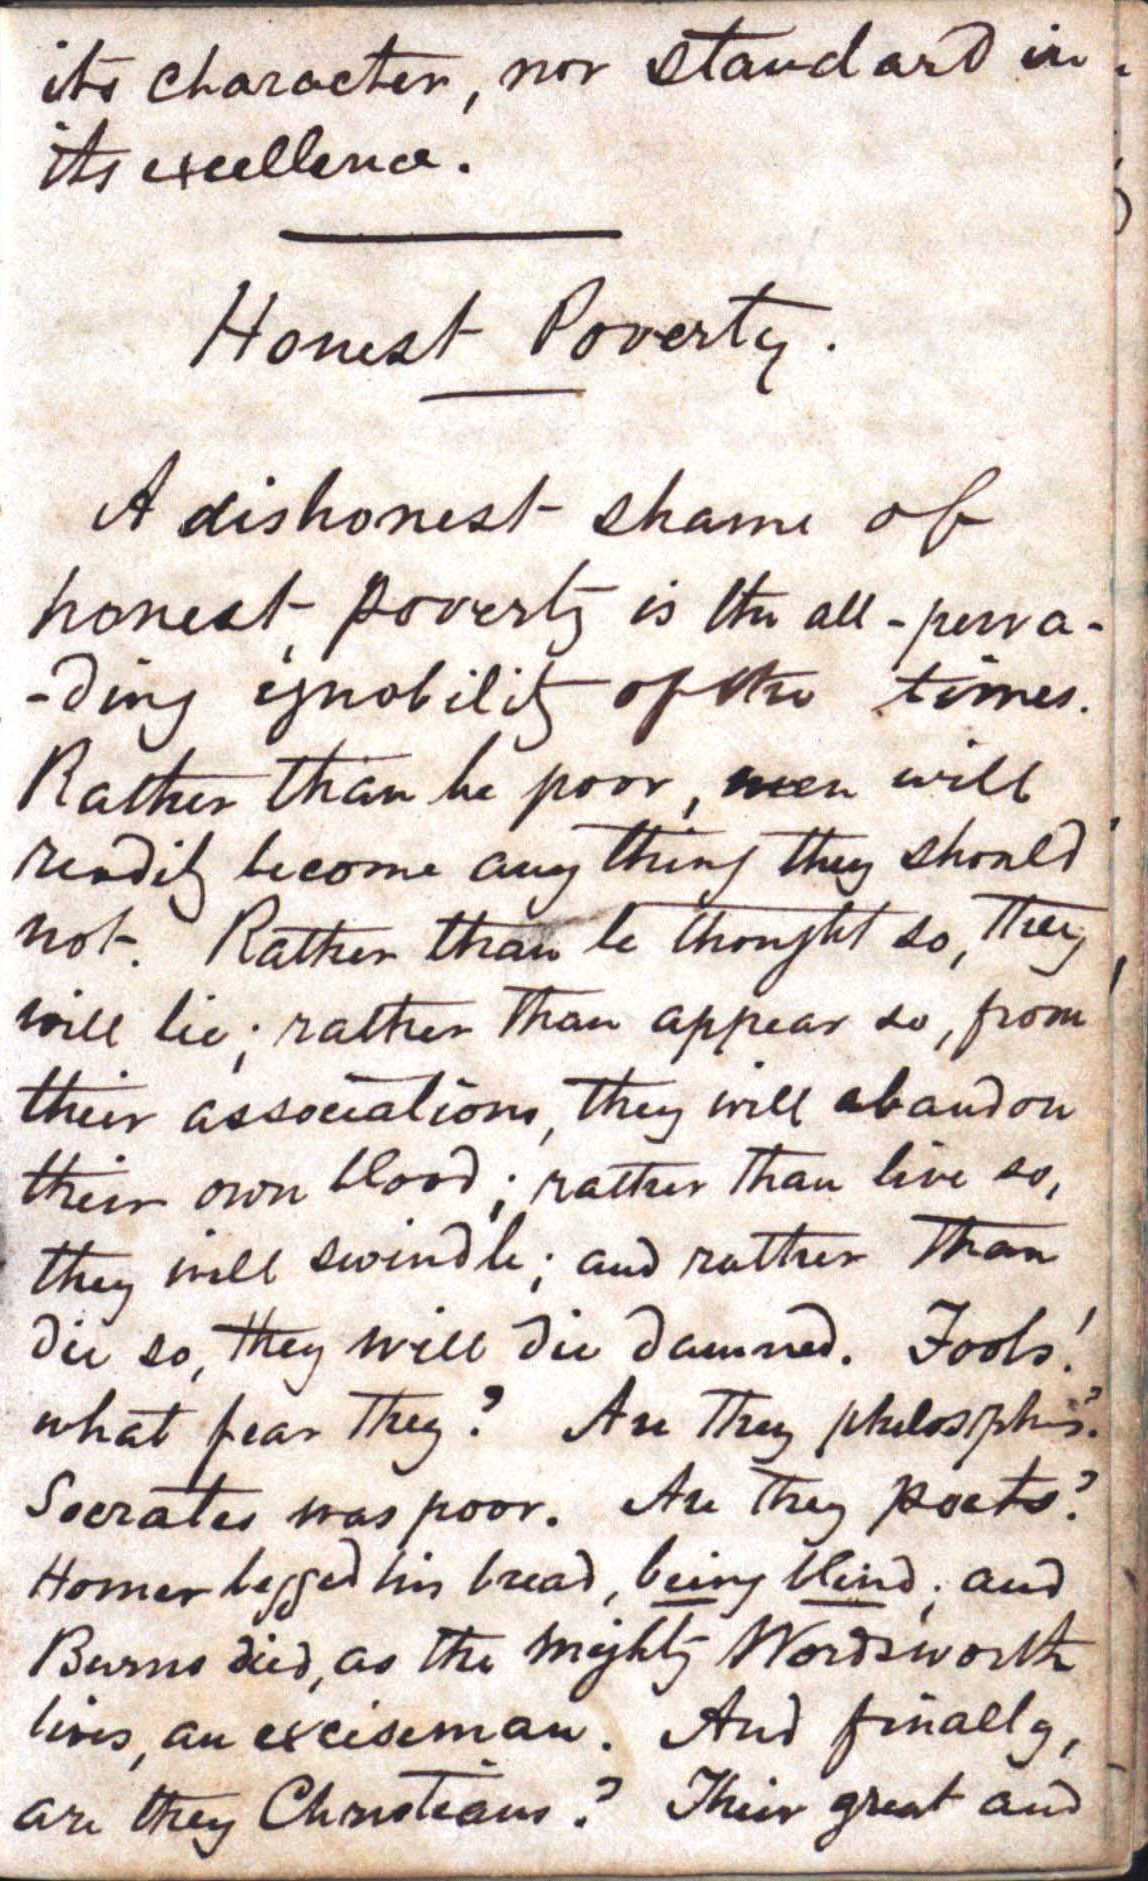 its character, nor standard in
its excellence.
Honest Poverty.
A dishonest shame of
honest poverty is the all-perva-
-ding ignobility of the times.
Rather than be poor, men will
readily become any thing they should
not. Rather than be thought so, they
will lie; rather than appear so, from
their associations, they will abandon
their own blood; rather than live so,
they will swindle; and rather than
die so, they will die damned. Fools!
what fear they? Are they philosphers?
Socrates was poor. Are they poets?
Homer begged his bread, being blind; and
Burns died, as the mighty Wordsworth
lives, an exciseman. And finally,
are they Christians? Their great and